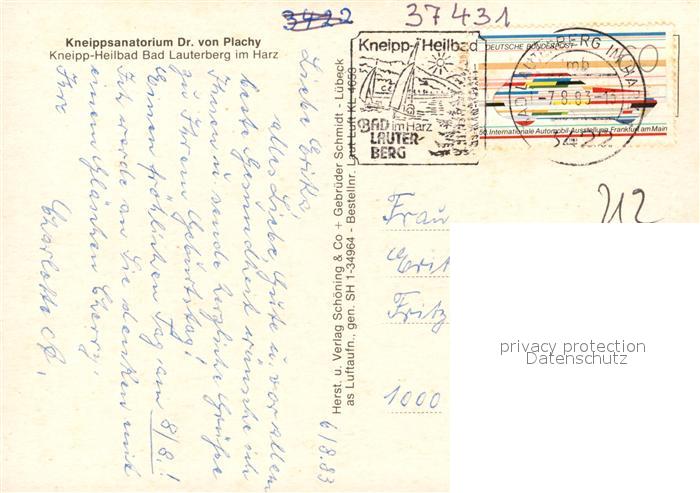 3422
37431
Kneippsanatorium Dr. von Plachy
Kneipp-Heilbad Bad Lauterberg im Harz
6/8.83
Liebe Erika,
alles Liebe Gute u. vor allem
beste Gesundheit wünsche ich
Ihnen u. sende herzliche Grüße
zu Ihrem Geburtstag!
Einen fröhlichen Tag am 8/8.!
Ich werde an Sie denken mit
einem Gläschen Sherry,
Ihre
Charlotte
Herst. u. Verlag Schöning & Co + Gebrüder Schmidt - Lübeck
as Luftaufn., gen. SH 1-34964 - Bestellnr. Laut Luft KL 4693
Kneipp-Heilbad
BAD im Harz
LAUTER-
BERG
DEUTSCHE BUNDESPOST
60
50. Internationale Automobil-Ausstellung Frankfurt am Main
BAD LAUTERBERG IM HARZ
mb
-7.8.83-
3422
212
Frau
Fritz
1000
privacy protection
Datenschutz